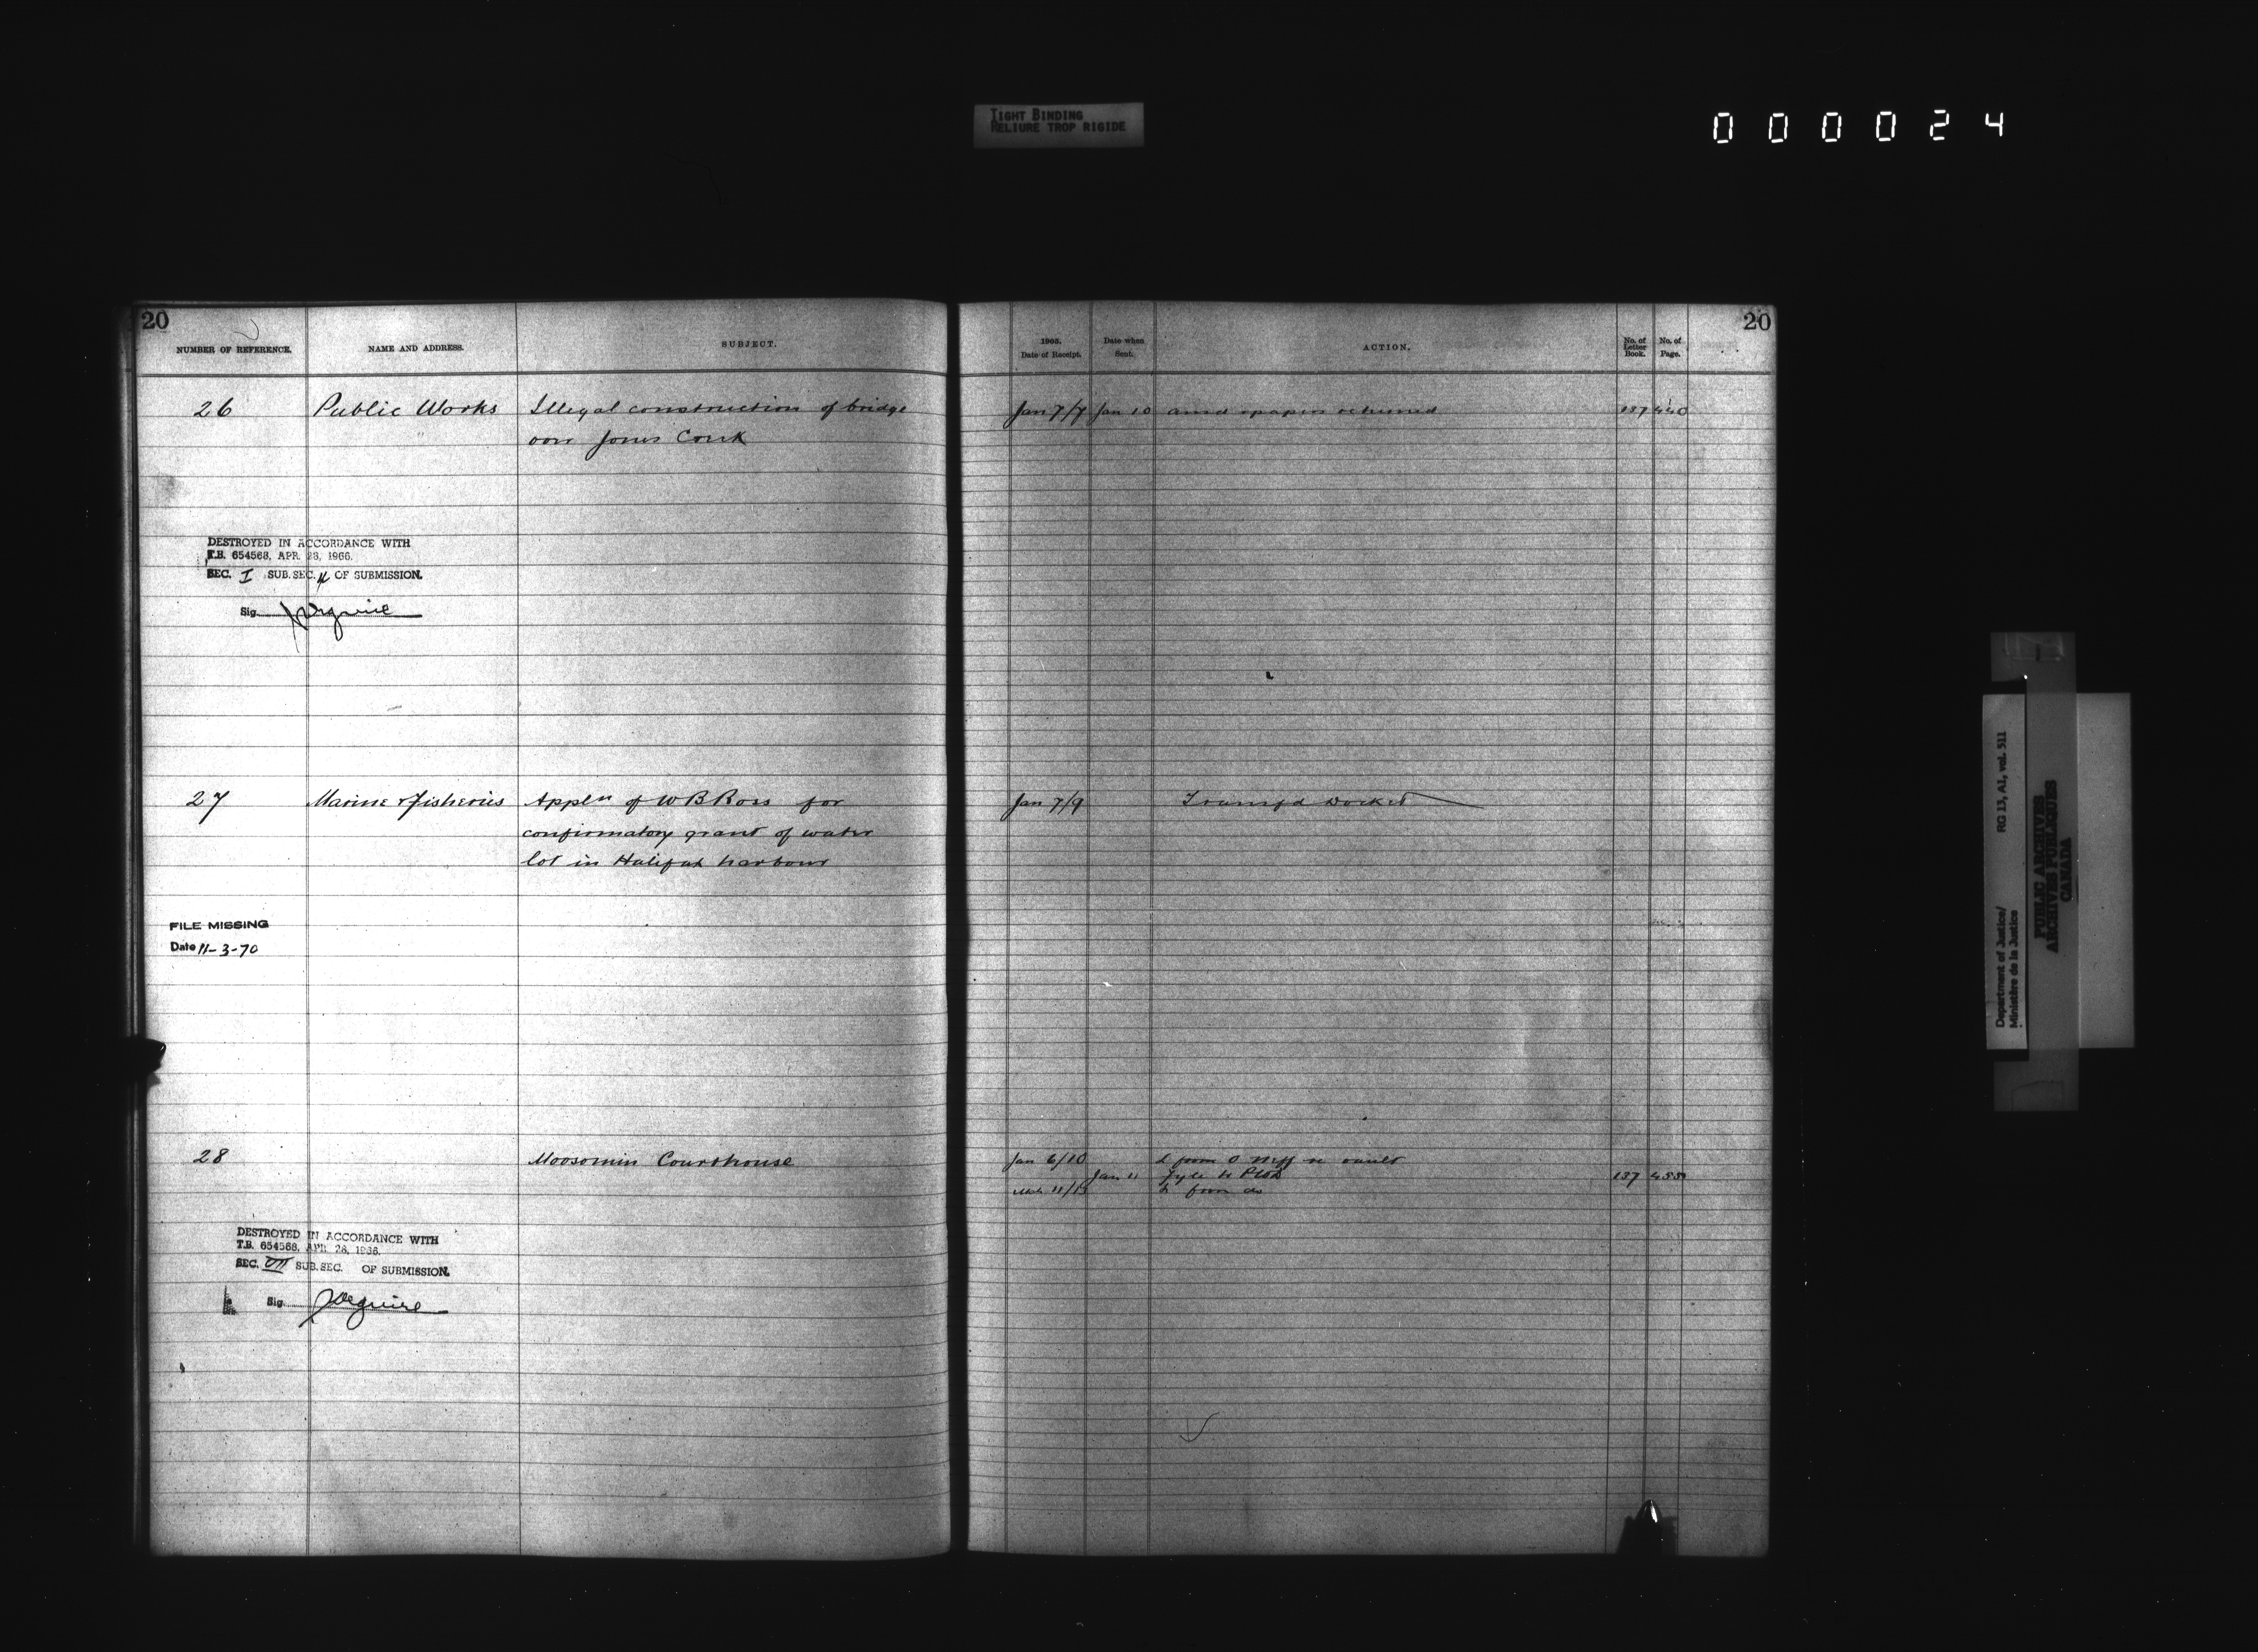 TIGHT BINDING
RELIURE TROP RIGIDE
000024
20
NUMBER OF REFERENCE.
NAME AND ADDRESS.
SUBJECT.
26
Public Works
Illegal construction of bridge
over Jones Creek
DESTROYED IN ACCORDANCE WITH
T.B. 654568, APR. 28, 1966.
SEC. I SUB. SEC. OF SUBMISSION.
Sig.
27
Marine & Fisheries
Appln of W B Ross for
confirmatory grant of water
lot in Halifax harbour
FILE MISSING
Date 11-3-70
28
Moosomin Courthouse
DESTROYED IN ACCORDANCE WITH
T.B. 654568, APR. 28, 1966.
SEC. VII SUB. SEC. OF SUBMISSION.
Sig.
20
1905.
Date of Receipt.
Date when
Sent.
ACTION.
No. of
Letter
Book.
No. of
Page.
Jan 7/7 Jan 10 papers returned 137 440
Jan 7/9 Transfd Docket
Jan 6/10 L from
Jan 11 137 455
11/13 from do
Department of Justice/ RG 13, A1, vol. 511
Ministère de la Justice
PUBLIC ARCHIVES
ARCHIVES PUBLIQUES
CANADA